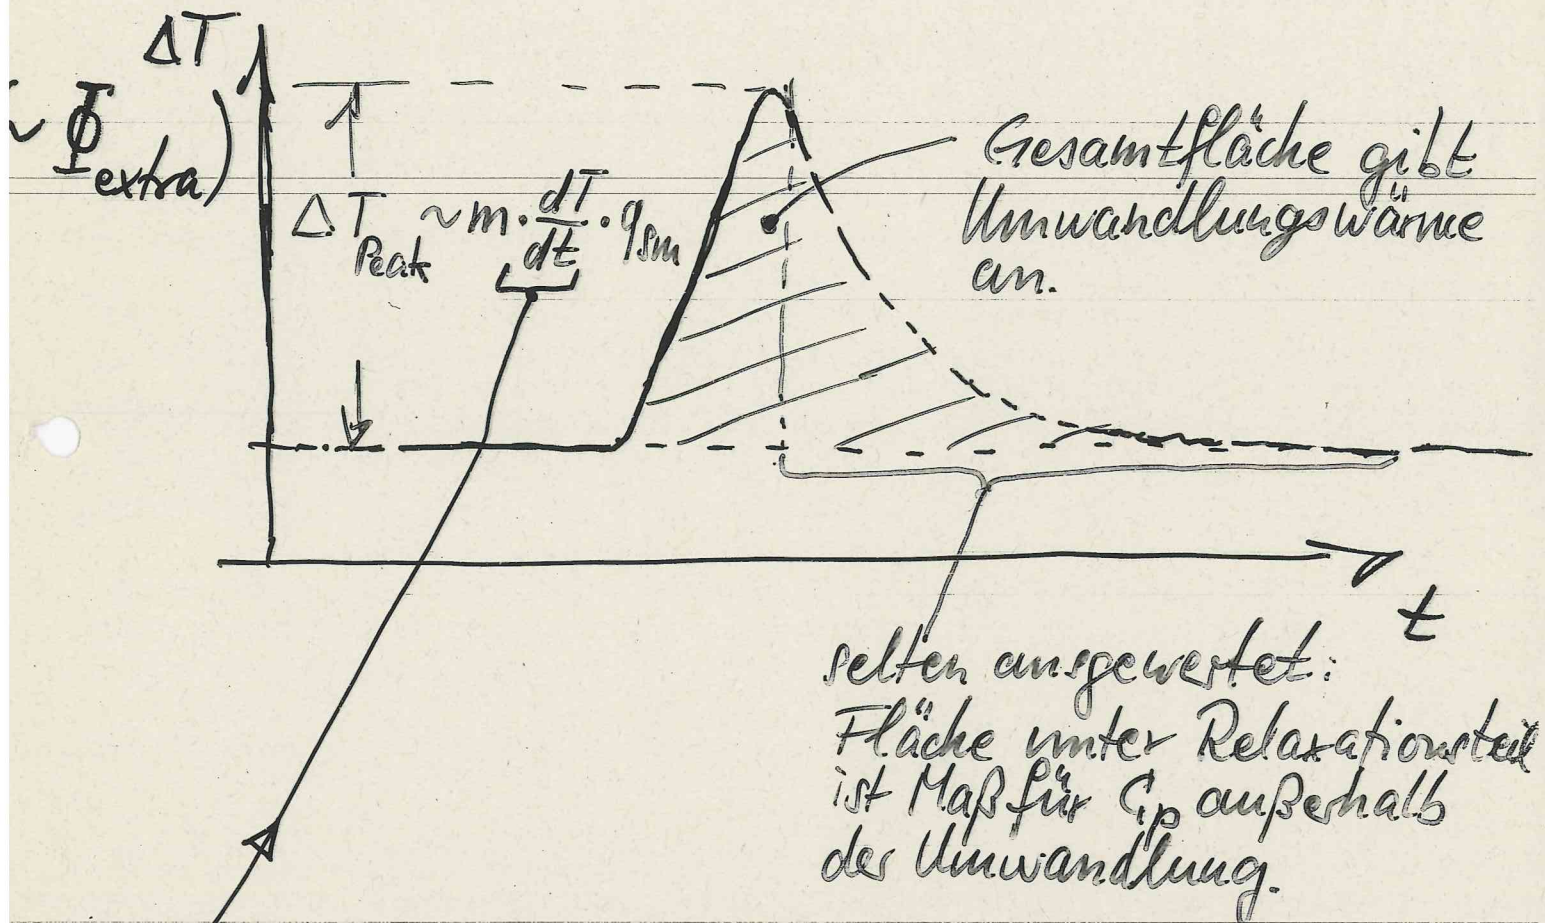 ΔT
~ Φ extra)
ΔT Peak ~ m · dT/dt · q sm
Gesamtfläche gibt
Umwandlungswärme
an.
t
selten ausgewertet:
Fläche unter Relaxationsteil
ist Maß für Cp außerhalb
der Umwandlung.